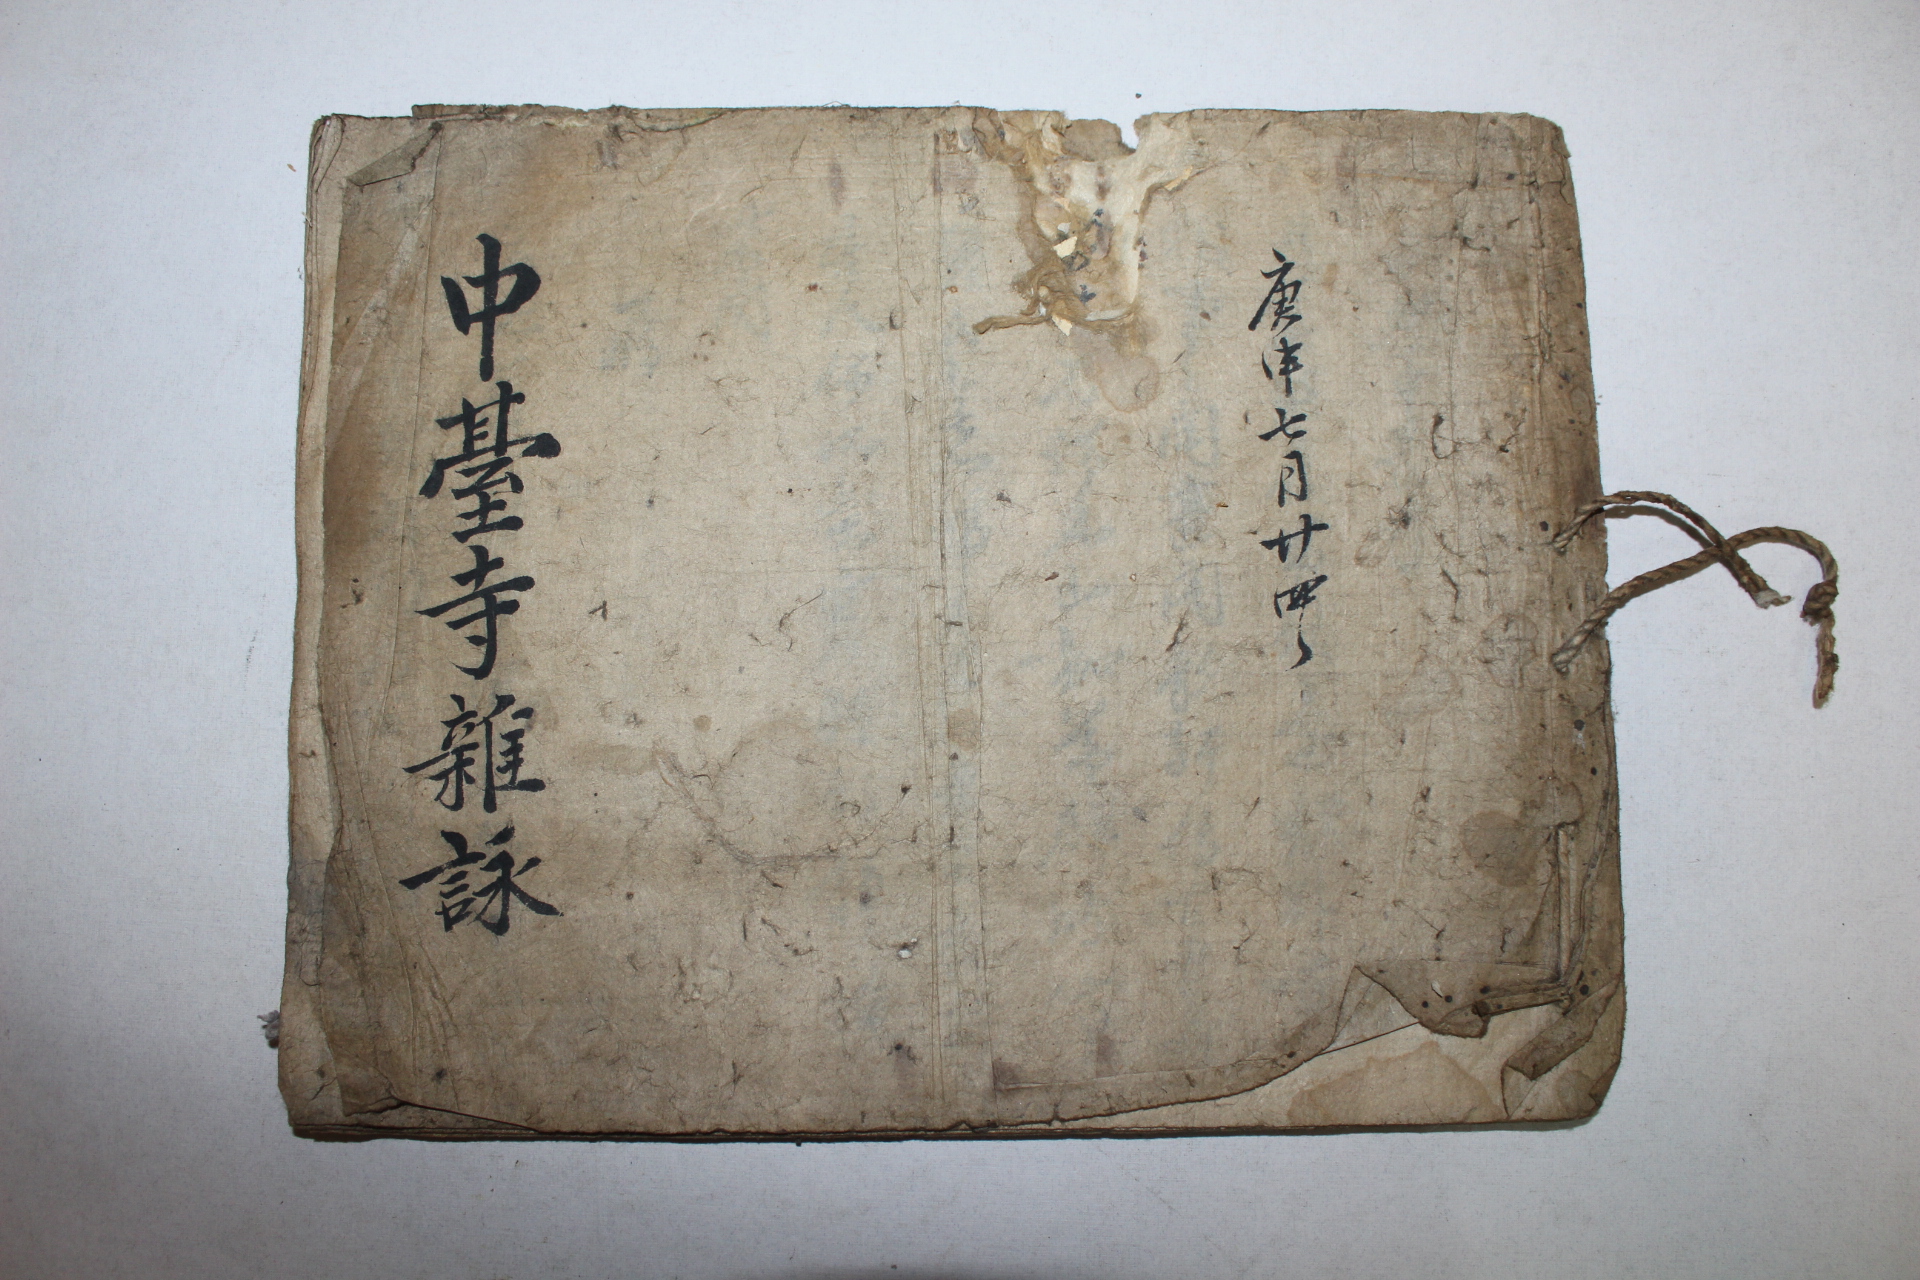 庚申七月廿四日
中臺寺雜詠